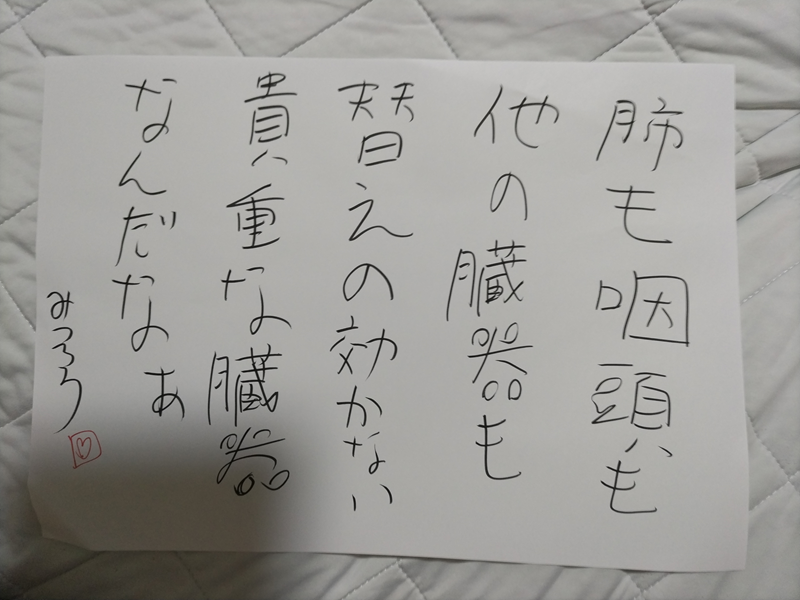 肺も咽頭も
他の臓器も
替えの効かない
貴重な臓器
なんだなぁ
みつろう